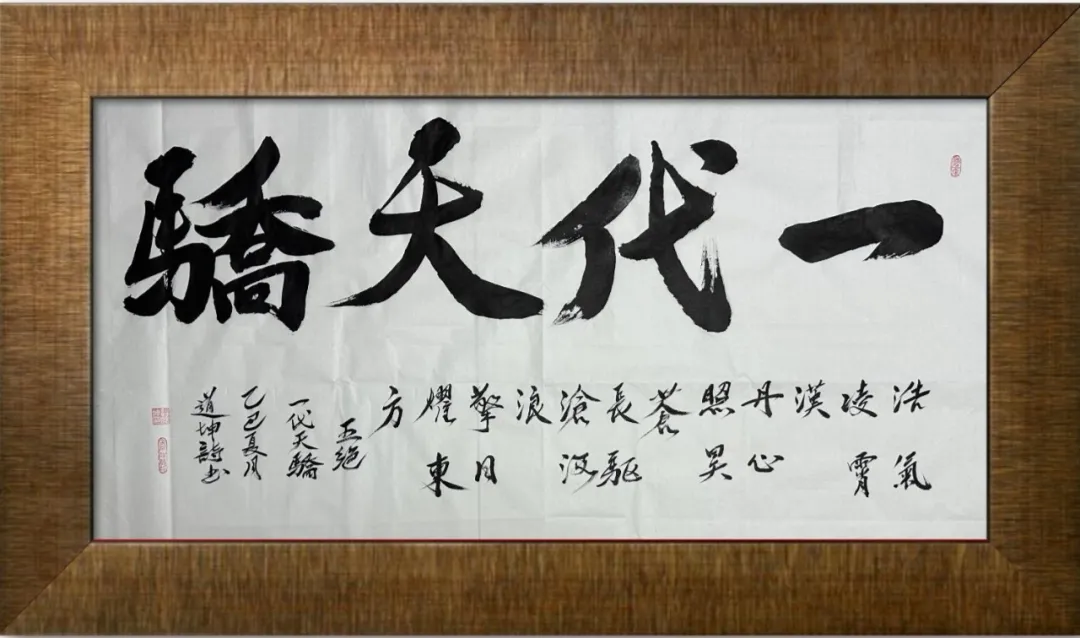 一代天驕
浩氣
凌霄
漢
丹心
照昊
蒼
長驅
滄海
浪
擎日
燿東
方
五絕
一代天驕
乙巳夏月
道坤詩书